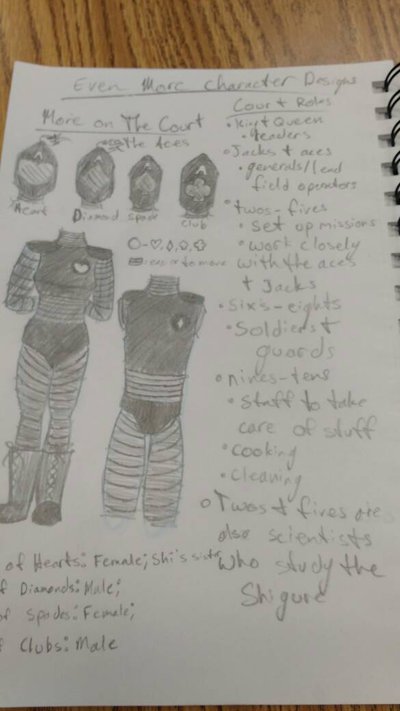 Even More Character Designs
More on The Court
The Aces
Heart
Diamond
Spade
Club
Court Roles
King + Queen
leaders
Jacks + aces
generals/lead
field operators
twos-fives
set up missions
work closely
with the aces
+ Jacks
Six's-eights
Soldiers +
guards
nines-tens
Staff to take
care of stuff
cooking
cleaning
Twos + fives are
also scientists
who study the
Shigure
of Hearts: Female; Shi's sister
of Diamonds: Male;
of Spades: Female;
of Clubs: Male